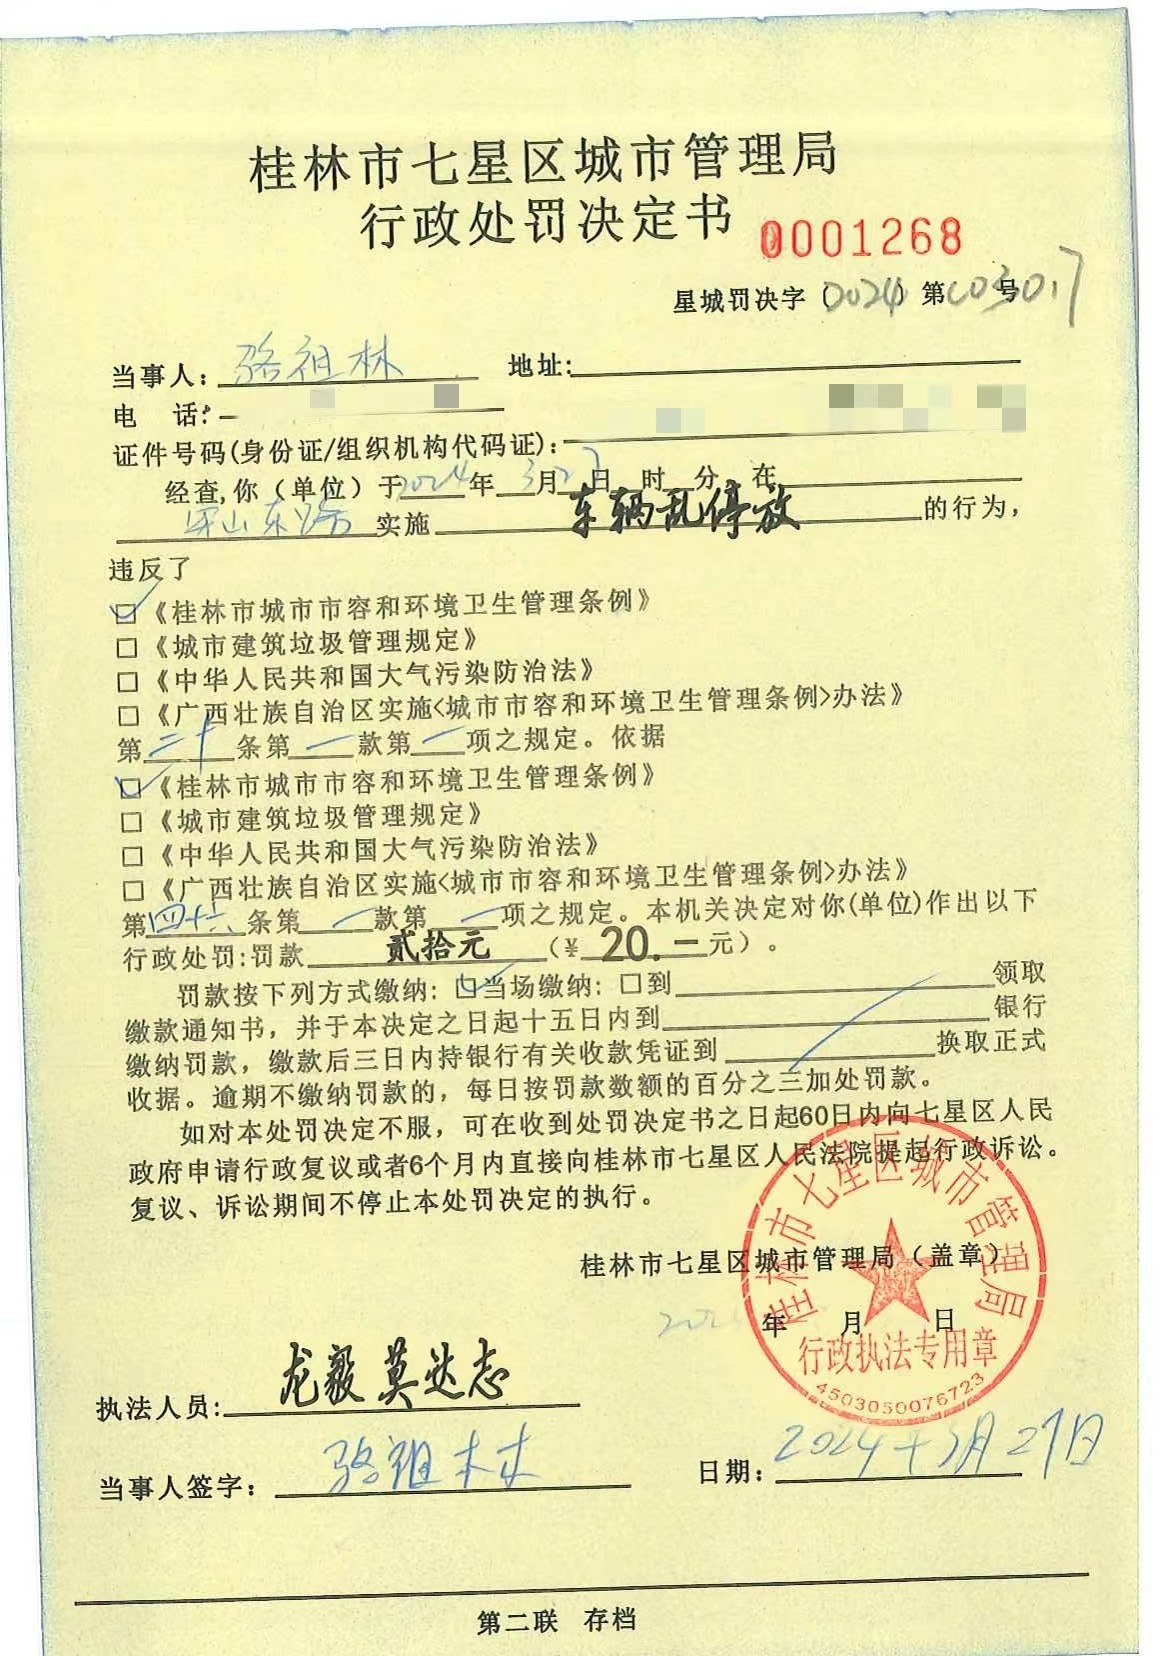 桂林市七星区城市管理局
行政处罚决定书 0001268
星城罚决字（2024）第003017号
当事人：骆祖林 地址:
电 话:
证件号码(身份证/组织机构代码证):
经查,你（单位）于2024年3月27日 时 分 在
屏山东路实施 车辆乱停放 的行为，
违反了
☑《桂林市城市市容和环境卫生管理条例》
□《城市建筑垃圾管理规定》
□《中华人民共和国大气污染防治法》
□《广西壮族自治区实施<城市市容和环境卫生管理条例>办法》
第二十条第一款第一项之规定。依据
☑《桂林市城市市容和环境卫生管理条例》
□《城市建筑垃圾管理规定》
□《中华人民共和国大气污染防治法》
□《广西壮族自治区实施<城市市容和环境卫生管理条例>办法》
第四十六条第一款第一项之规定。本机关决定对你(单位)作出以下
行政处罚:罚款 贰拾元（¥20.一元）。
罚款按下列方式缴纳：☑当场缴纳：□到 领取
缴款通知书，并于本决定之日起十五日内到 银行
缴纳罚款，缴款后三日内持银行有关收款凭证到 换取正式
收据。逾期不缴纳罚款的，每日按罚款数额的百分之三加处罚款。
如对本处罚决定不服，可在收到处罚决定书之日起60日内向七星区人民
政府申请行政复议或者6个月内直接向桂林市七星区人民法院提起行政诉讼。
复议、诉讼期间不停止本处罚决定的执行。
桂林市七星区城市管理局（盖章）
年 月 日
桂林市七星区城市管理局
行政执法专用章
4503050076723
执法人员:龙毅 莫达志
当事人签字：骆祖林 日期：2024年3月27日
第二联 存档